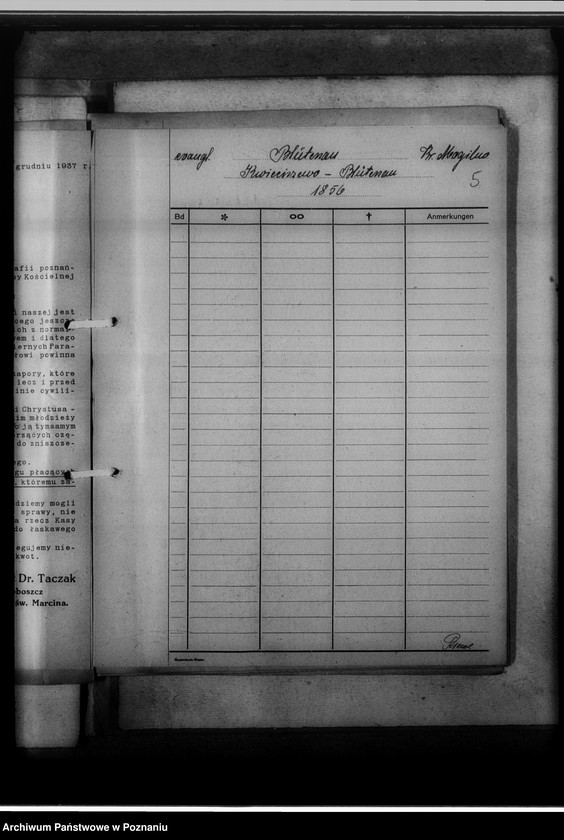 grudniu 1937 r.
afii poznań-
y Kościelnej
i naszej jest
oego jeszcz
ch z normal-
em i dlatego
iernych Para-
łowi powinna
apory, które
lecz i przed
inie cywili-
i Chrystusa -
im młodzieży
o ją tymsamym
rzących ozę-
do zniszcze-
ego.
gu płacący
, któremu za-
dziemy mogli
sprawy, nie
a rzecz Kasy
do łaskawego
egujemy nie-
kwot.
Dr. Taczak
boszcz
św. Marcina.
evangl. Blütenau Kr. Mogilno
Kwieciszewo - Blütenau 5
1856
Bd * oo † Anmerkungen
Archiwum Państwowe w Poznaniu